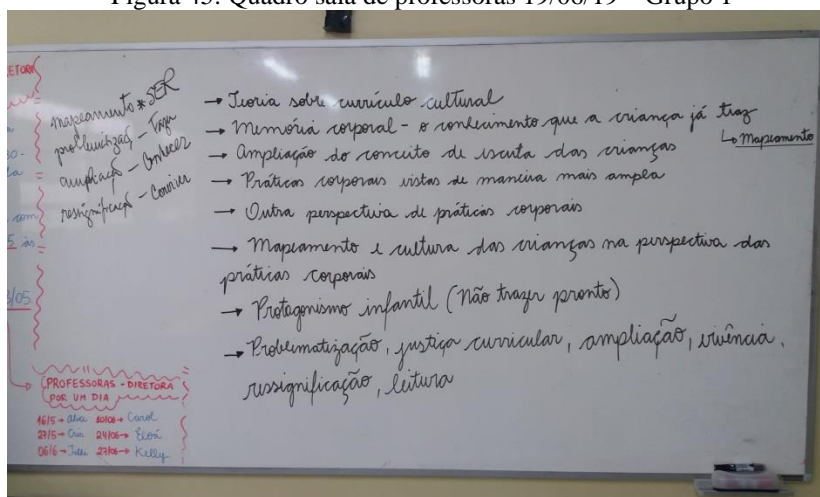 Figura 45: Quadro sala de professoras 19/06/19 – Grupo 1
mapeamento * SER
problematizaç - Fazer
ampliação - Conhecer
ressignificação - Conviver
→ Teoria sobre currículo cultural
→ Memória corporal - o conhecimento que a criança já traz
↳ Mapeamento
→ Ampliação do conceito de escuta das crianças
→ Práticas corporais vistas de maneira mais ampla
→ Outra perspectiva de práticas corporais
→ Mapeamento e cultura das crianças na perspectiva das
práticas corporais
→ Protagonismo infantil (Não trazer pronto)
→ Problematização, justiça curricular, ampliação, vivência,
ressignificação, leitura
ETORA
com
5 às
3/05
PROFESSORAS - DIRETORA
POR UM DIA
16/5 → Alice 10/06 → Carol
27/5 → Cris 24/06 →
06/6 → 27/06 → Kelly